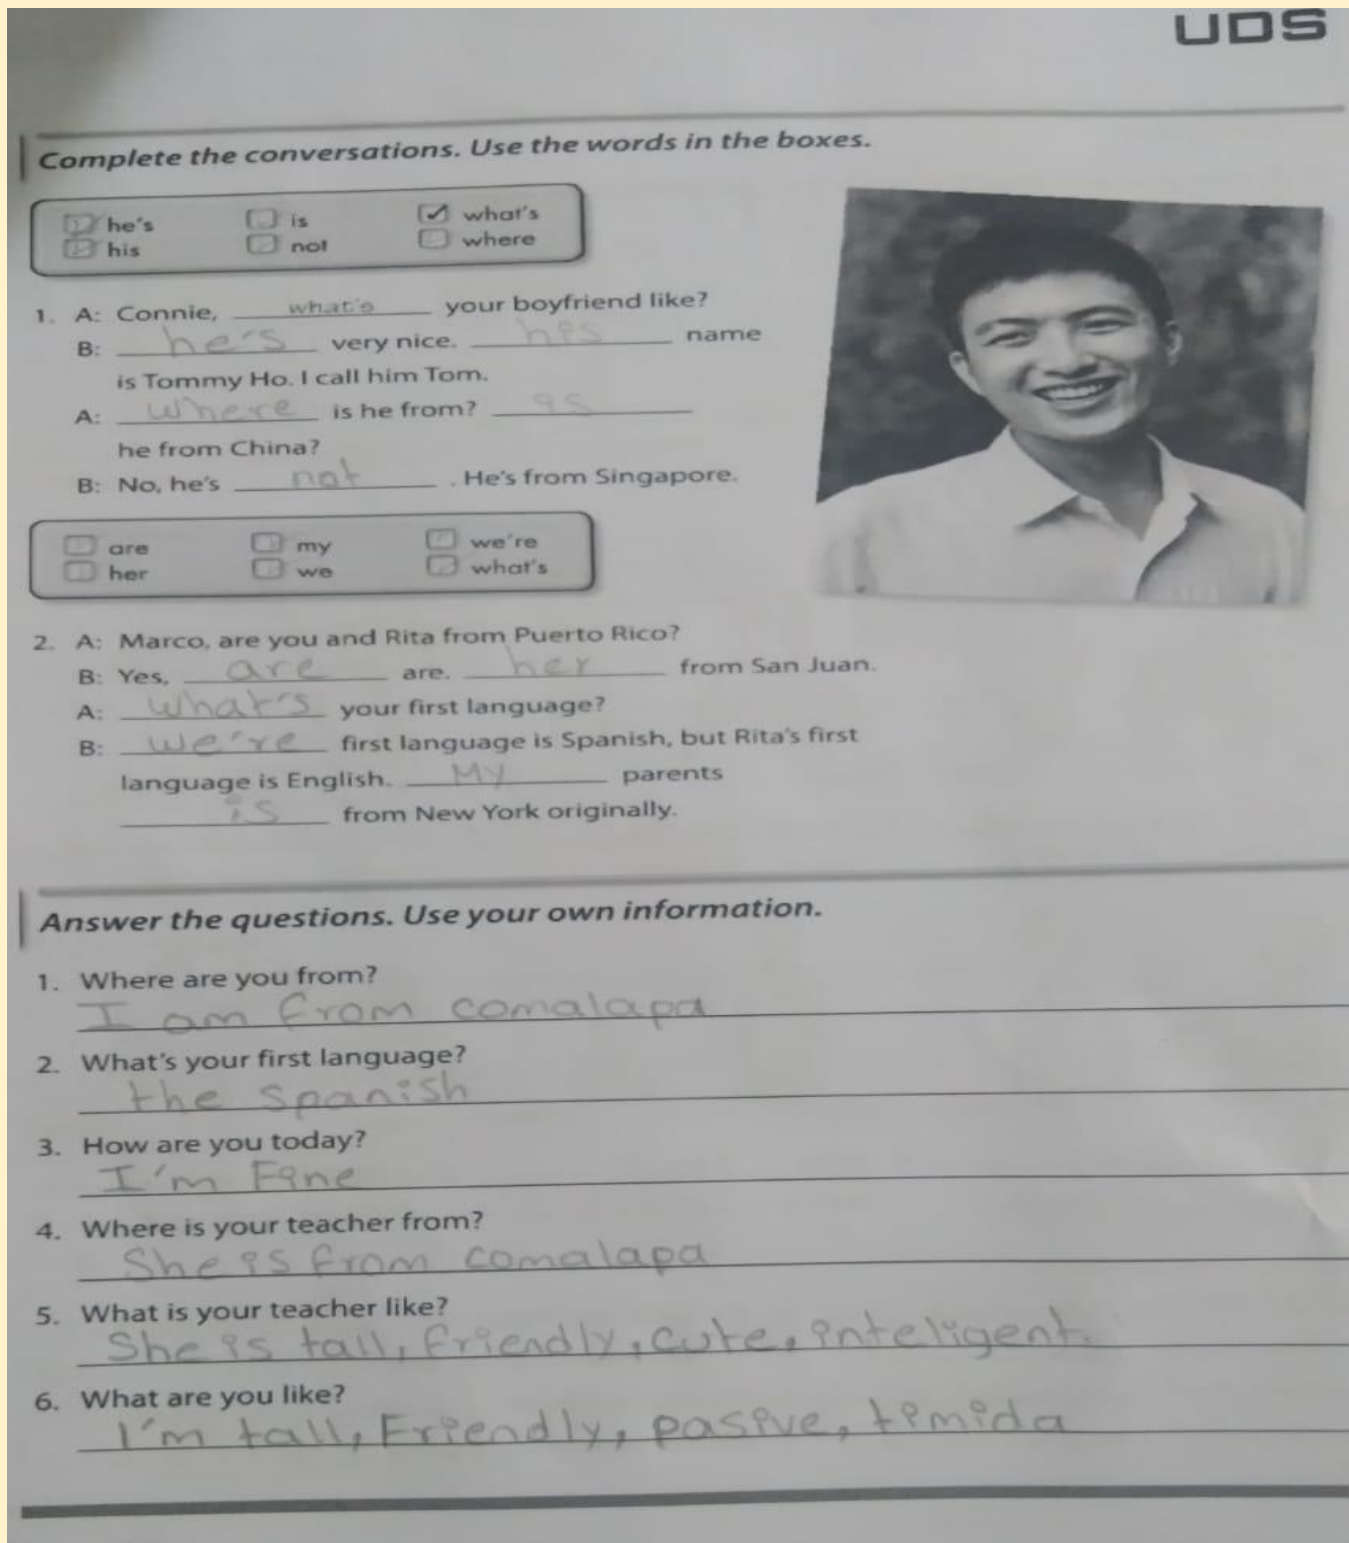 UDS
Complete the conversations. Use the words in the boxes.
he's is what's
his not where
1. A: Connie, what's your boyfriend like?
B: he's very nice. his name
is Tommy Ho. I call him Tom.
A: where is he from? is
he from China?
B: No, he's not. He's from Singapore.
are my we're
her we what's
2. A: Marco, are you and Rita from Puerto Rico?
B: Yes, are are. her from San Juan.
A: what's your first language?
B: we're first language is Spanish, but Rita's first
language is English. My parents
is from New York originally.
Answer the questions. Use your own information.
1. Where are you from?
I am from comalapa
2. What's your first language?
the spanish
3. How are you today?
I'm Fine
4. Where is your teacher from?
She is from comalapa
5. What is your teacher like?
She is tall, friendly, cute, inteligent.
6. What are you like?
I'm tall, Friendly, pasive, timida